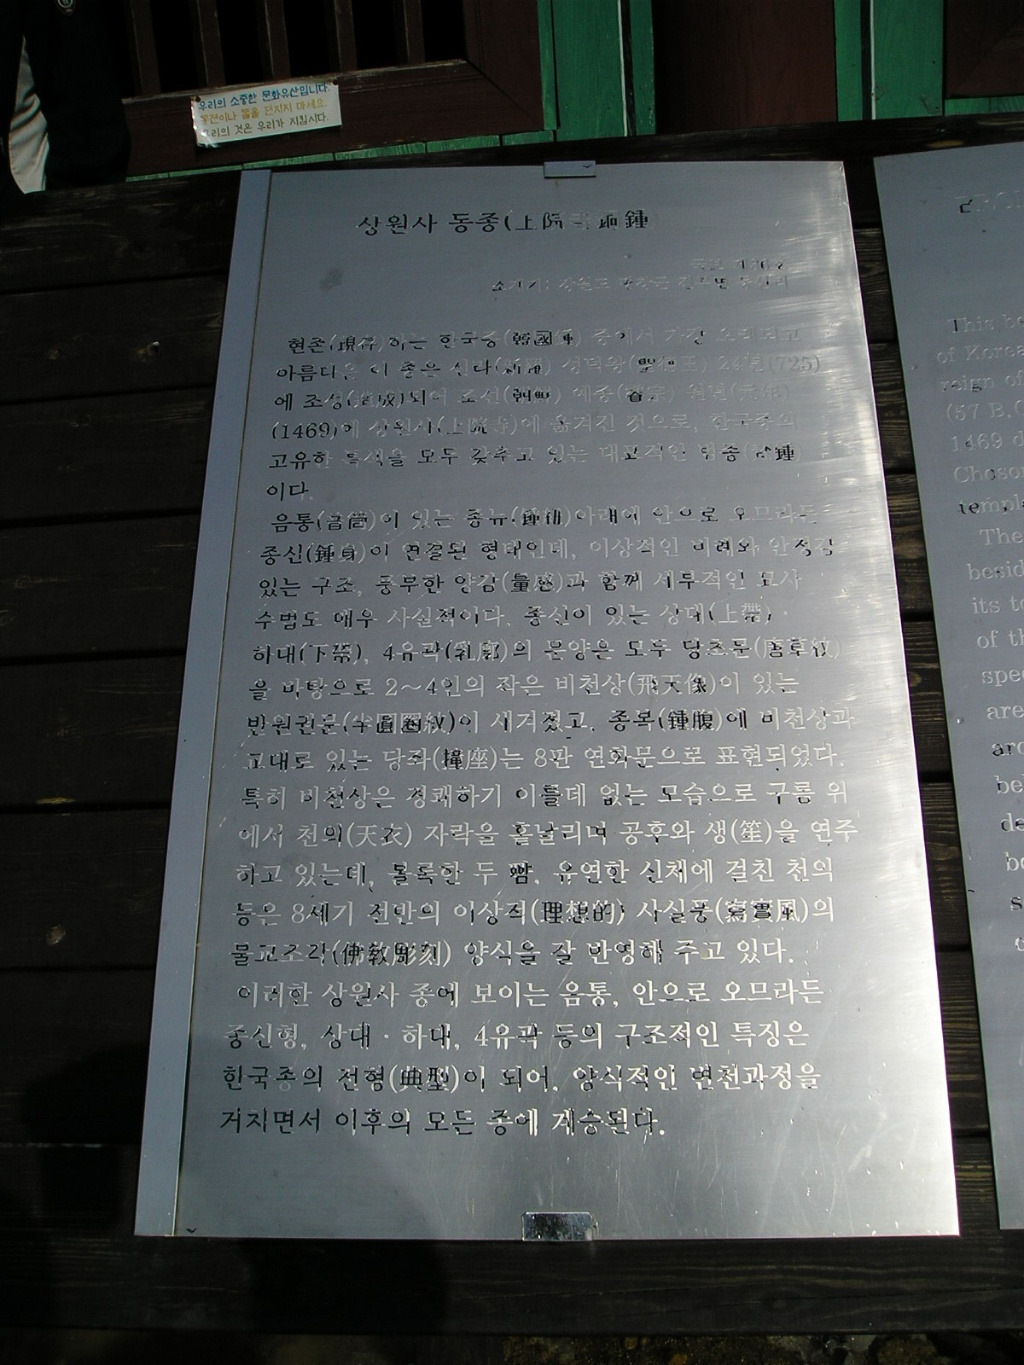 우리의 소중한 문화유산입니다.
동전이나 돌을 던지지 마세요.
우리의 것은 우리가 지킵시다.
상원사 동종(上院寺銅鍾)
국보 제36호
소재지: 강원도 평창군 진부면 동산리
현존(現存)하는 한국종(韓國鍾) 중에서 가장 오래되고
아름다운 이 종은 신라(新羅) 성덕왕(聖德王) 24년(725)
에 조성(造成)되어 조선(朝鮮) 예종(睿宗) 원년(元年)
(1469)에 상원사(上院寺)에 옮겨진 것으로, 한국종의
고유한 특색을 모두 갖추고 있는 대표적인 범종(梵鍾)
이다.
음통(音筒)이 있는 종뉴(鍾紐)아래에 안으로 오므라든
종신(鍾身)이 연결된 형태인데, 이상적인 비례와 안정감
있는 구조, 풍부한 양감(量感)과 함께 세부적인 묘사
수법도 매우 사실적이다. 종신이 있는 상대(上帶)·
하대(下帶), 4유곽(乳廓)의 문양은 모두 당초문(唐草紋)
을 바탕으로 2～4인의 작은 비천상(飛天像)이 있는
반원권문(半圓圈紋)이 새겨졌고, 종복(鍾腹)에 비천상과
교대로 있는 당좌(撞座)는 8판 연화문으로 표현되었다.
특히 비천상은 경쾌하기 이를데 없는 모습으로 구름 위
에서 천의(天衣) 자락을 흩날리며 공후와 생(笙)을 연주
하고 있는데, 볼록한 두 뺨, 유연한 신체에 걸친 천의
등은 8세기 전반의 이상적(理想的) 사실풍(寫實風)의
불교조각(佛敎彫刻) 양식을 잘 반영해 주고 있다.
이러한 상원사 종에 보이는 음통, 안으로 오므라든
종신형, 상대·하대, 4유곽 등의 구조적인 특징은
한국종의 전형(典型)이 되어, 양식적인 변천과정을
거치면서 이후의 모든 종에 계승된다.
This
of Korea
reign of
(57 B.C
1469
Choson
templ
The
besid
its to
of th
spec
are